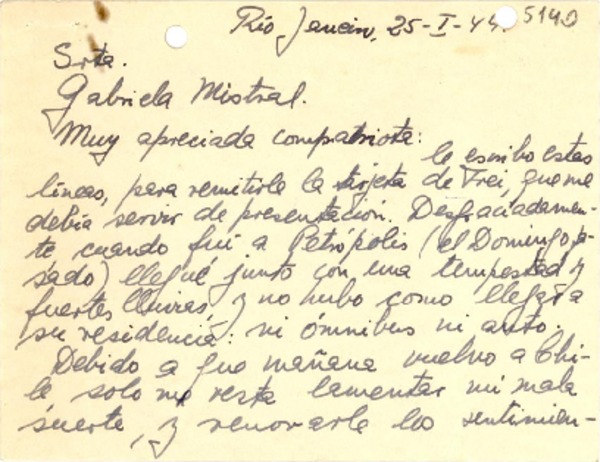 Río Janeiro, 25-I-44. 5140
Srta.
Gabriela Mistral.
Muy apreciada compatriota:
le escribo estas
líneas, para remitirle la tarjeta de Frei, que me
debía servir de presentación. Desgraciadamen-
te cuando fuí a Petrópolis (el Domingo pa-
sado) llegué junto con una tempestad y
fuertes lluvias, y no hubo como llegar a
su residencia: ni ómnibus ni auto.
Debido a que mañana vuelvo a Chi-
le solo me resta lamentar mi mala
suerte, y renovarle los sentimien-